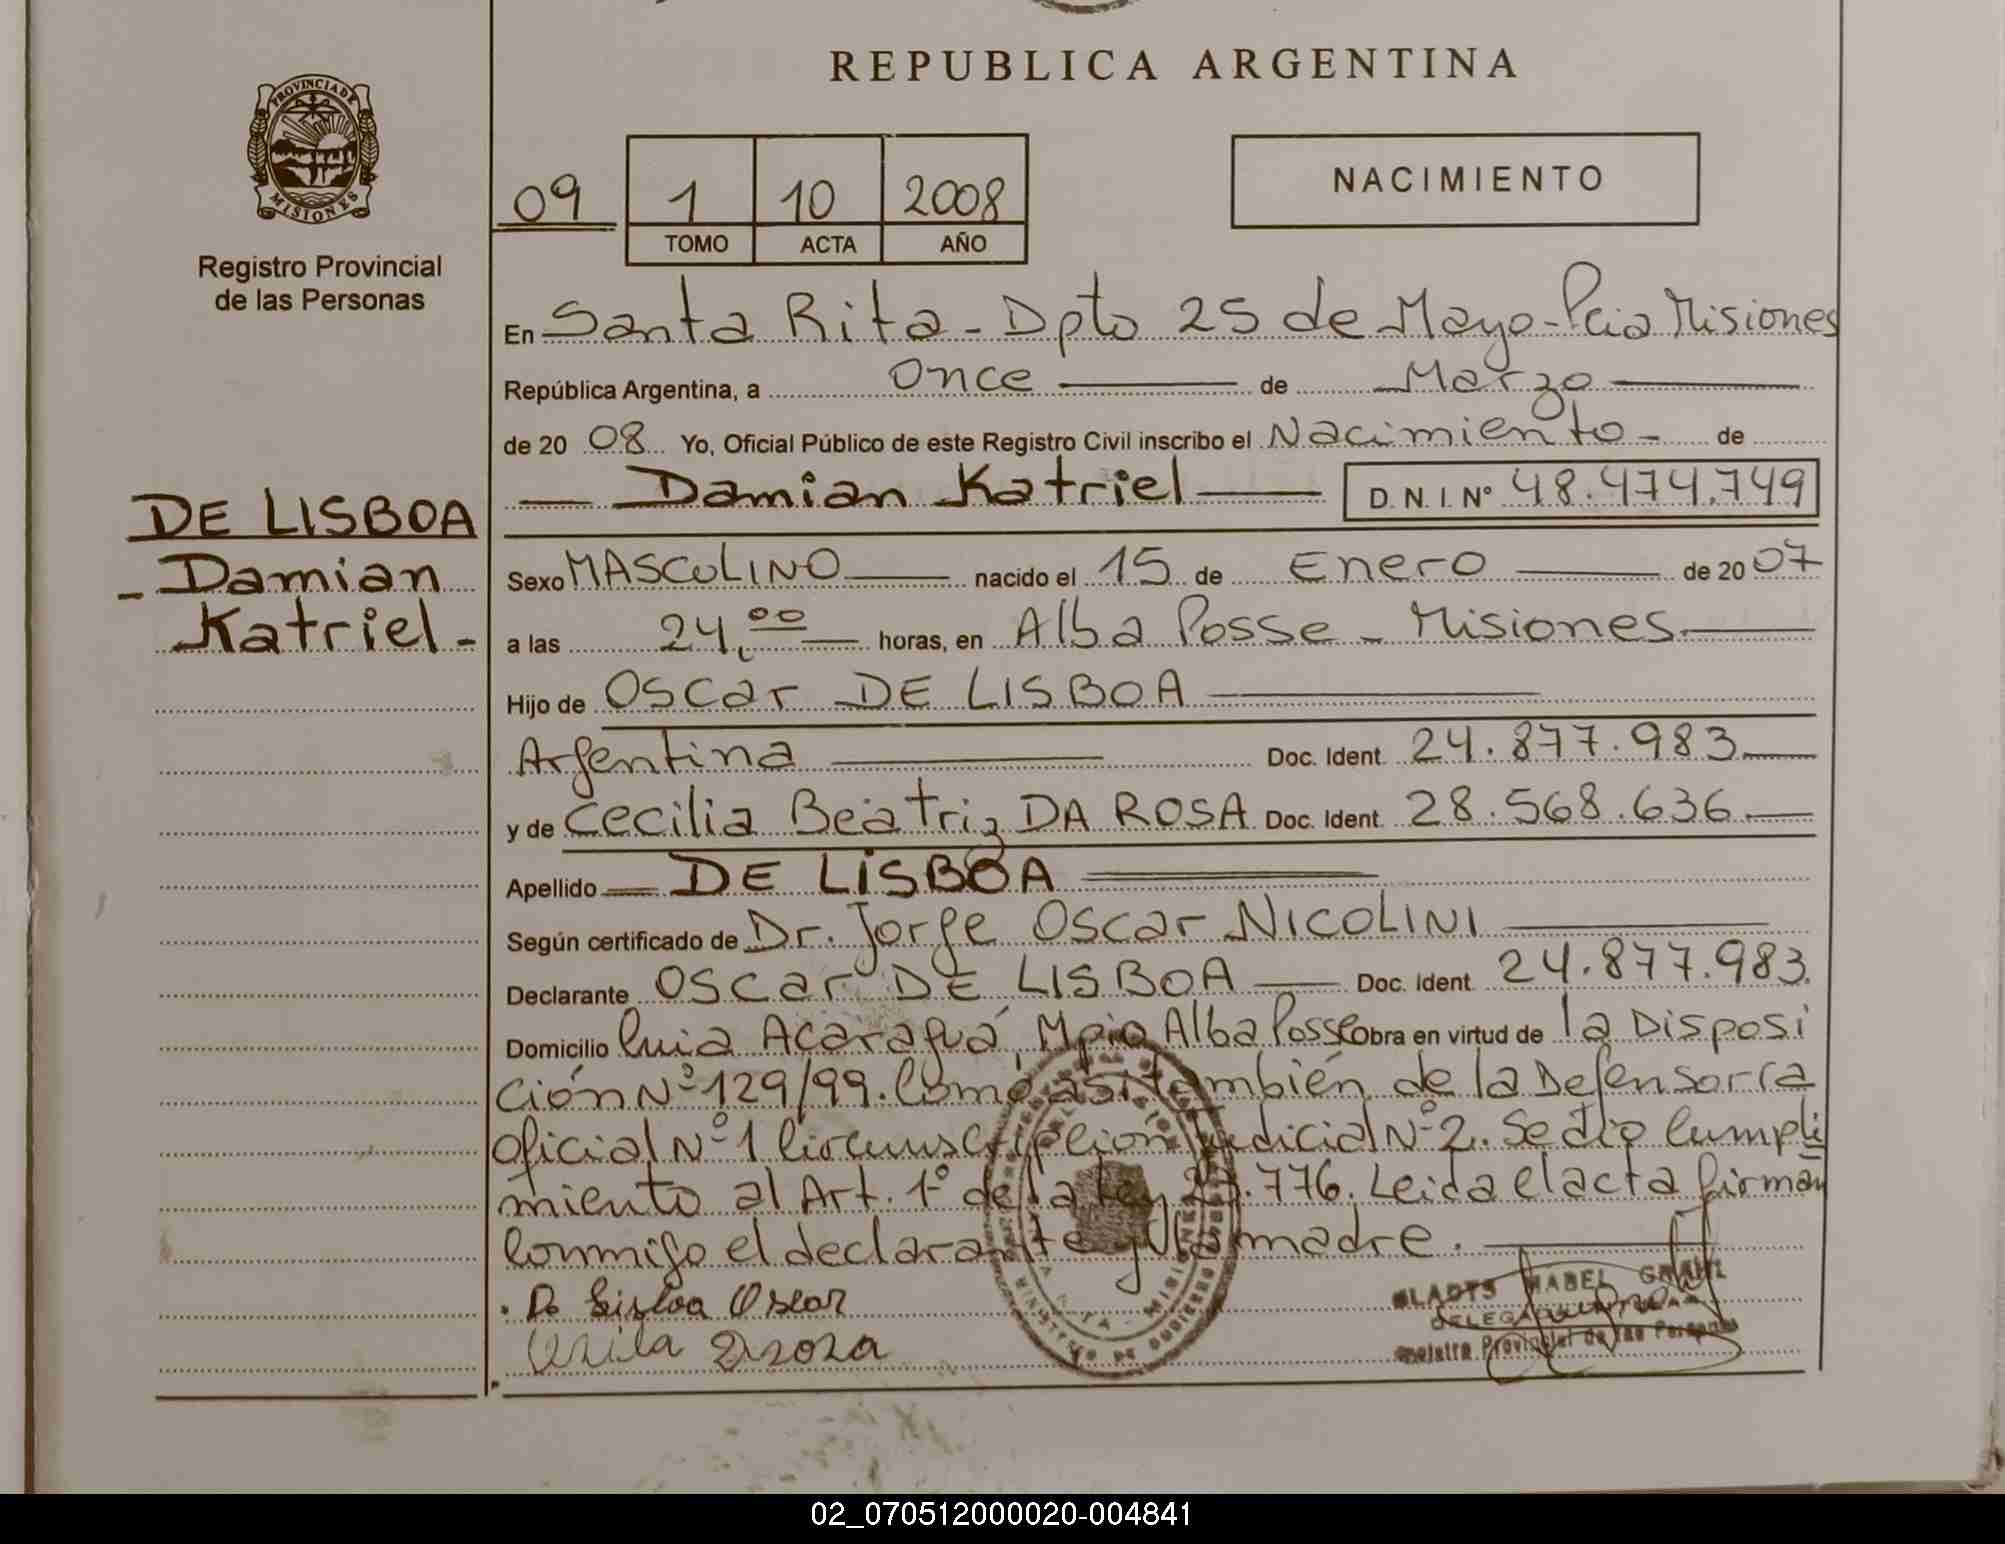 REPUBLICA ARGENTINA
PROVINCIA DE MISIONES
Registro Provincial
de las Personas
09
1 10 2008
TOMO ACTA AÑO
NACIMIENTO
En Santa Rita - Dpto 25 de Mayo - Pcia Misiones
República Argentina, a Once de Marzo
de 20 08 Yo, Oficial Público de este Registro Civil inscribo el Nacimiento - de
Damian Katriel D. N. I. N° 48.474.749
DE LISBOA
- Damian
Katriel -
Sexo MASCULINO nacido el 15 de Enero de 20 07
a las 24,00 horas, en Alba Posse - Misiones
Hijo de Oscar DE LISBOA
Argentina Doc. Ident. 24.877.983
y de Cecilia Beatriz DA ROSA Doc. Ident. 28.568.636
Apellido DE LISBOA
Según certificado de Dr. Jorge Oscar NICOLINI
Declarante Oscar DE LISBOA Doc. Ident. 24.877.983.
Domicilio Acaraguá, Mpio Alba Posse Obra en virtud de la Disposi
ción N° 129/99. Como asi también de la Defensoría
Oficial N° 1 Circunscripción Judicial N° 2. Se dio Cumpli
miento al Art. 1° de la Ley .776. Leida el acta firman
Conmigo el declarante y la madre.
De Lisboa Oscar
GLADYS MABEL
Registro Provincial de las Personas
02_070512000020-004841